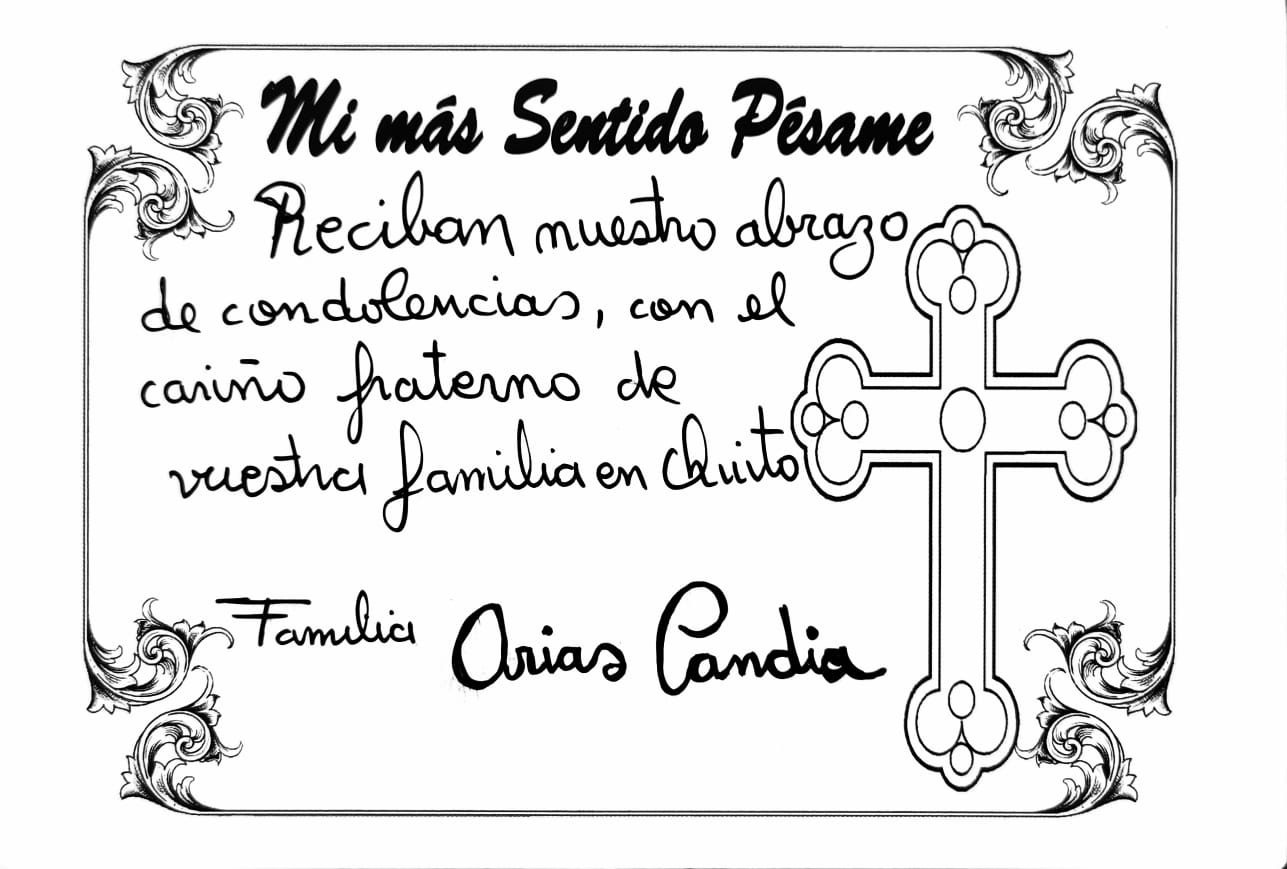 Mi más Sentido Pésame
Reciban nuestro abrazo
de condolencias, con el
cariño fraterno de
vuestra familia en Quito
Familia Arias Candia